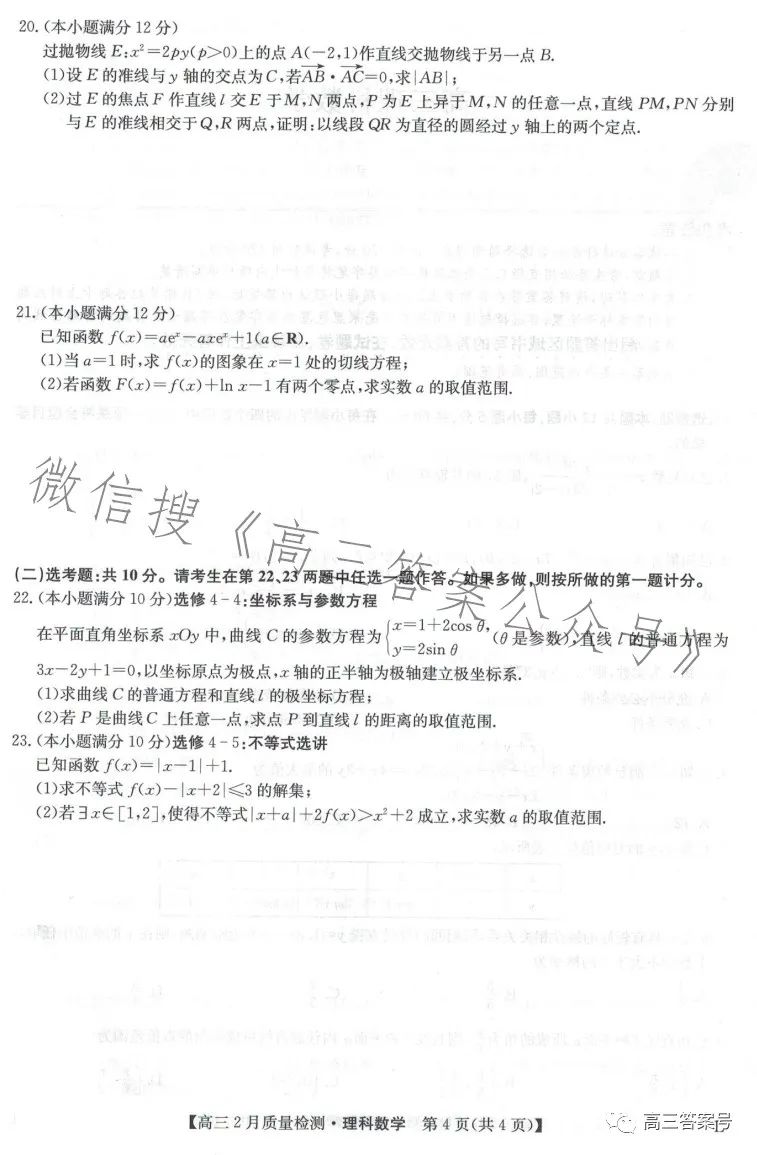 20.(本小题满分12分)
过抛物线E:x²=2py(p>0)上的点A(-2,1)作直线交抛物线于另一点B.
(1)设E的准线与y轴的交点为C,若AB·AC=0,求|AB|;
(2)过E的焦点F作直线l交E于M,N两点,P为E上异于M,N的任意一点,直线PM,PN分别
与E的准线相交于Q,R两点,证明:以线段QR为直径的圆经过y轴上的两个定点.
21.(本小题满分12分)
已知函数f(x)=aeˣ-axeˣ+1(a∈R).
(1)当a=1时,求f(x)的图象在x=1处的切线方程;
(2)若函数F(x)=f(x)+ln x-1有两个零点,求实数a的取值范围.
微信搜《高三答案公众号》
(二)选考题:共10分。请考生在第22、23两题中任选一题作答。如果多做,则按所做的第一题计分。
22.(本小题满分10分)选修4-4:坐标系与参数方程
在平面直角坐标系xOy中,曲线C的参数方程为{x=1+2cos θ, y=2sin θ (θ是参数),直线l的普通方程为
3x-2y+1=0,以坐标原点为极点,x轴的正半轴为极轴建立极坐标系.
(1)求曲线C的普通方程和直线l的极坐标方程;
(2)若P是曲线C上任意一点,求点P到直线l的距离的取值范围.
23.(本小题满分10分)选修4-5:不等式选讲
已知函数f(x)=|x-1|+1.
(1)求不等式f(x)-|x+2|≤3的解集;
(2)若∃x∈[1,2],使得不等式|x+a|+2f(x)>x²+2成立,求实数a的取值范围.
【高三2月质量检测·理科数学 第4页(共4页)】
高三答案号